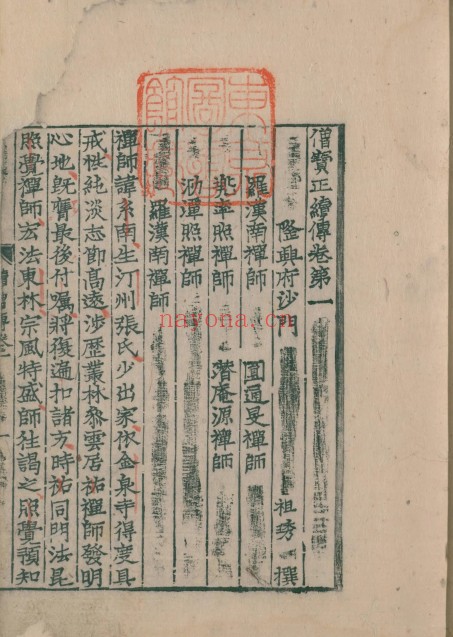 僧寶正續傳卷第一
隆興府沙門 祖琇 撰
羅漢南禪師 圓通旻禪師
兠率照禪師 潛庵源禪師
泐潭照禪師
羅漢南禪師
禪師諱系南生汀州張氏少出家依金泉寺得度具
戒性純淡志節高遠涉歷叢林參雲居祐禪師發明
心地既膺最後付囑將復遍扣諸方時祐同門法昆
照覺禪師宏法東林宗風特盛師往謁之照覺預知
nayona.cn